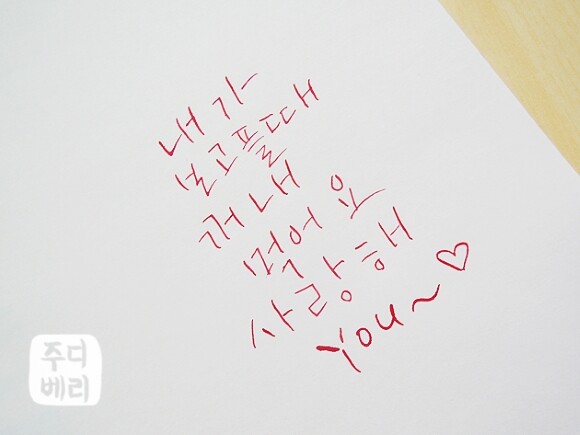 내가
보고플때
꺼내
먹어요
사랑해
you~♡
주디
베리